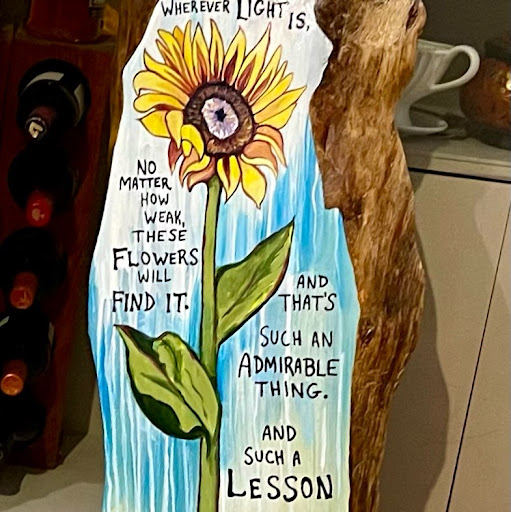 WHEREVER LIGHT IS,
NO
MATTER
HOW
WEAK,
THESE
FLOWERS
WILL
FIND IT.
AND
THAT'S
SUCH AN
ADMIRABLE
THING.
AND
SUCH A
LESSON